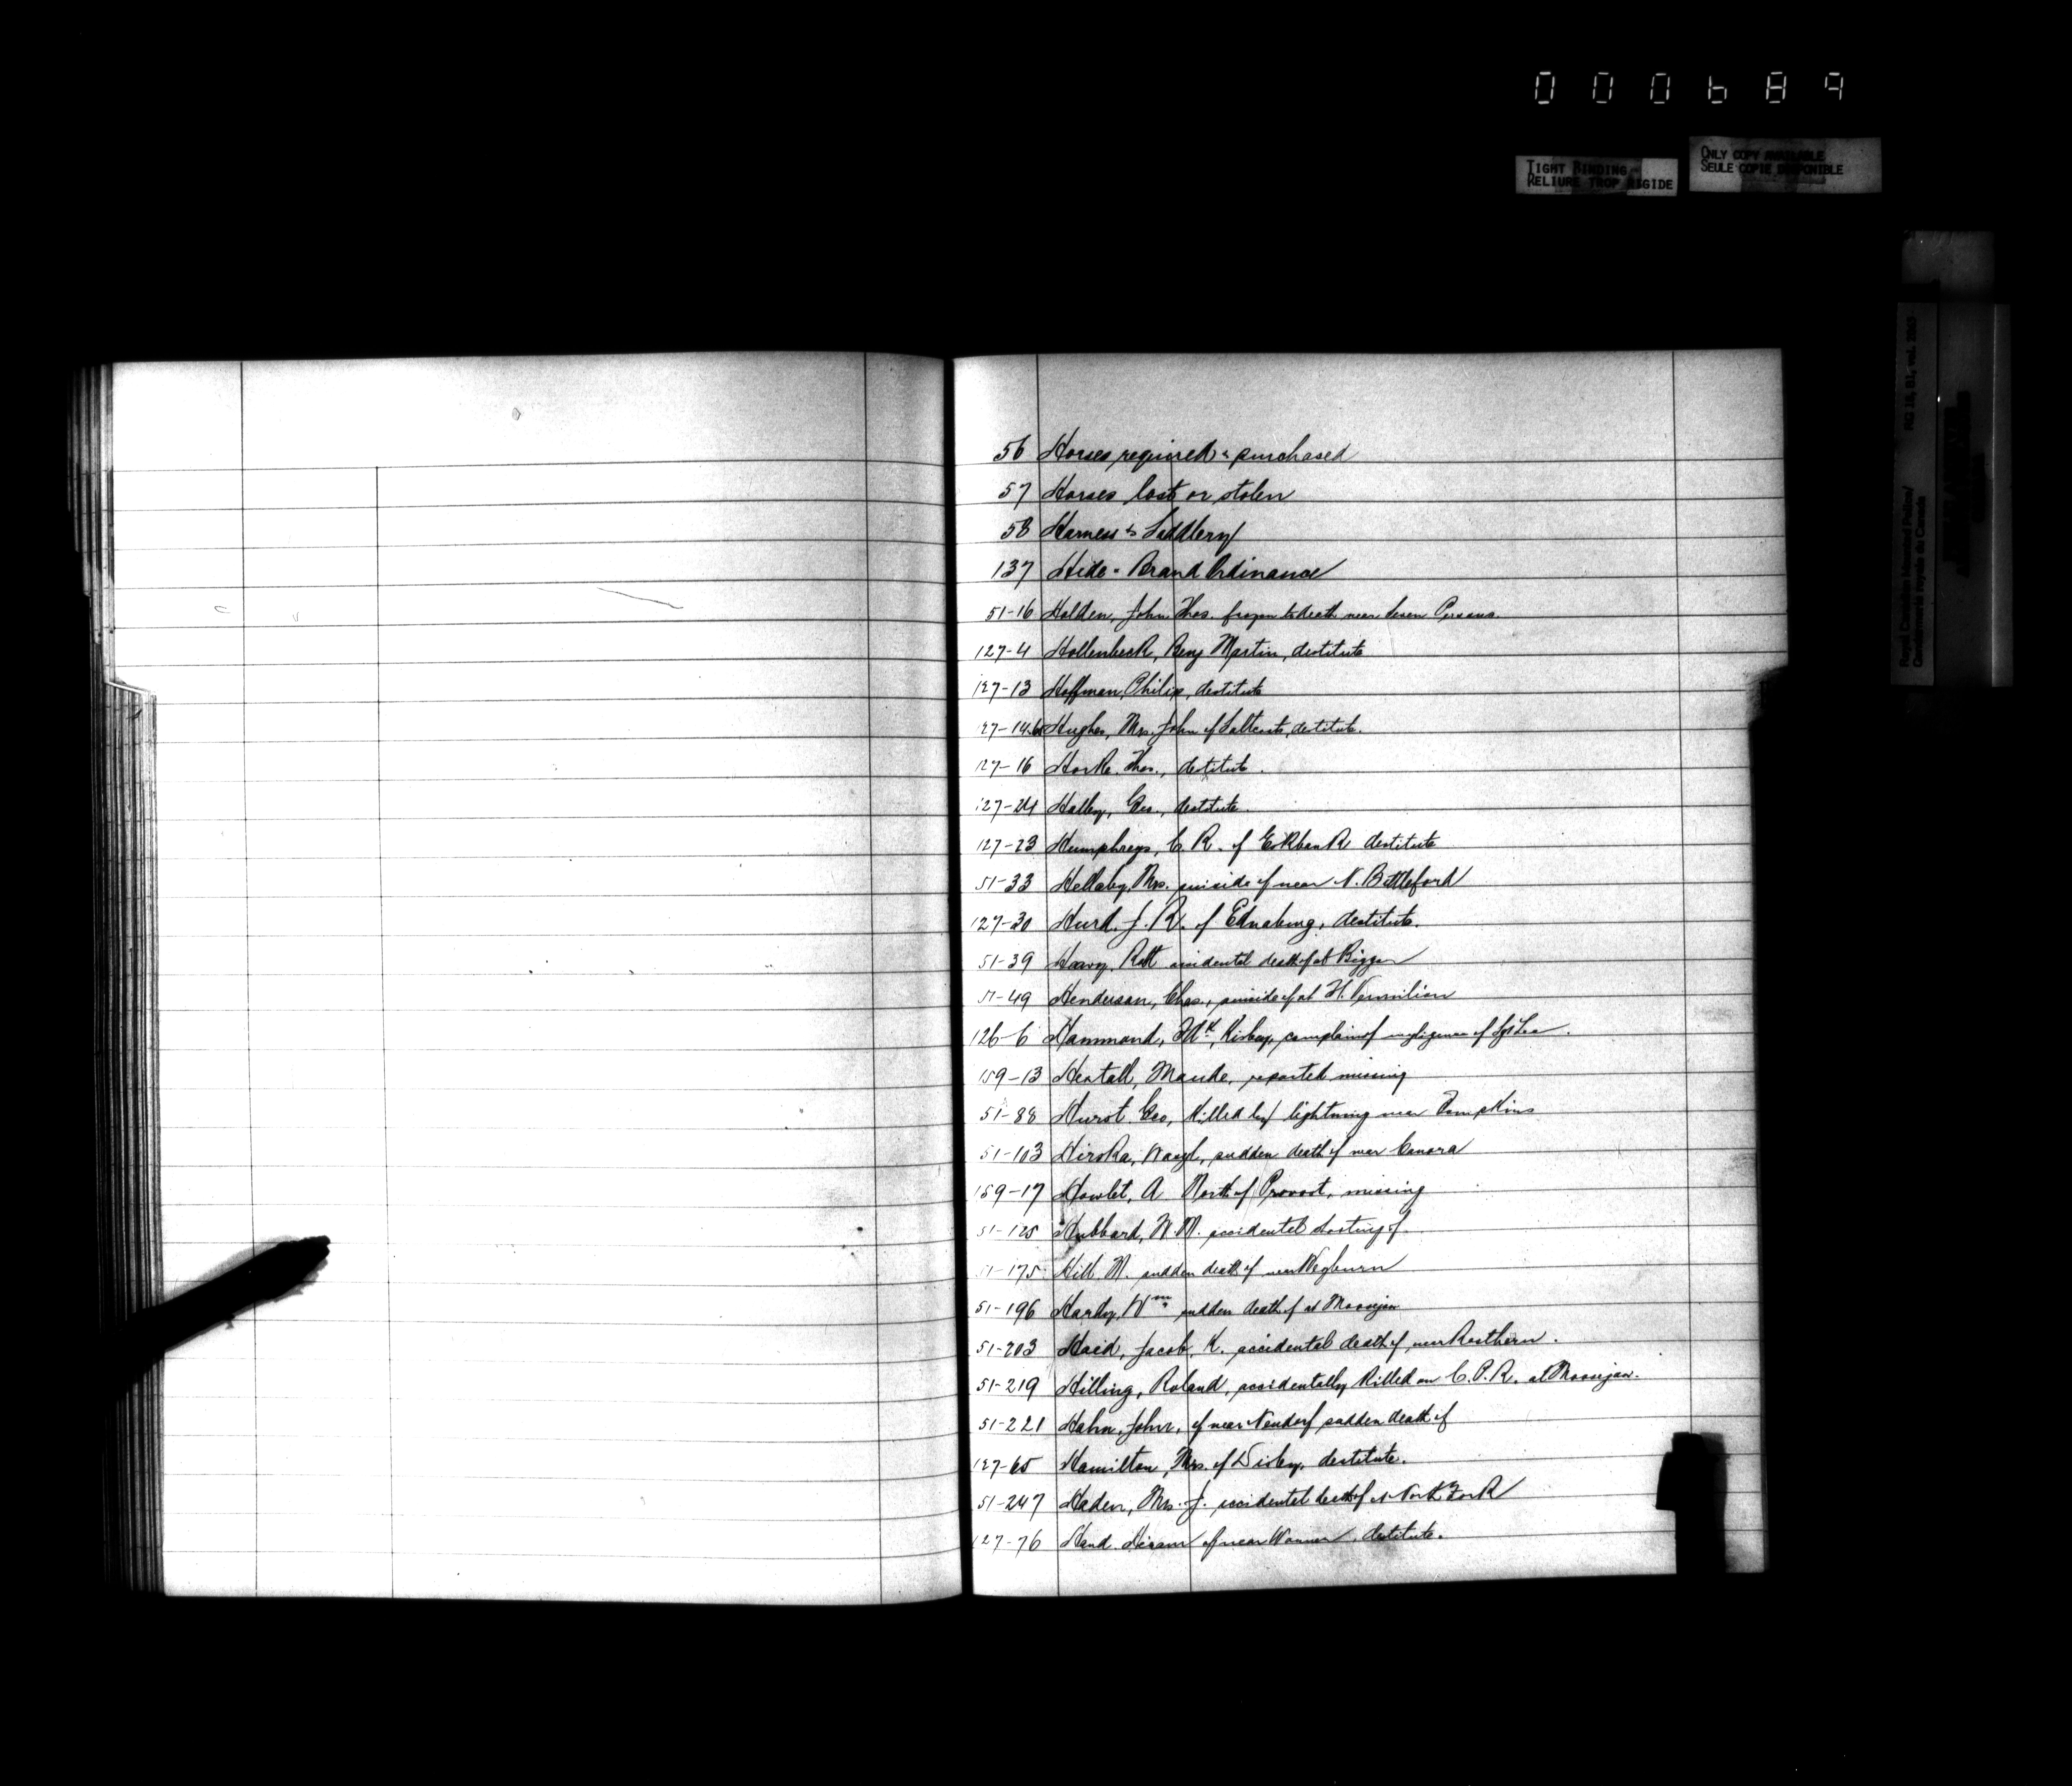 000689
TIGHT BINDING
RELIURE TROP RIGIDE
ONLY COPY AVAILABLE
SEULE COPIE DISPONIBLE
Royal Canadian Mounted Police/
Gendarmerie royale du Canada
RG 18, B1, vol.
56 Horses required & purchased
57 Horses lost or stolen
58 Harness & Saddlery
137 Hide - Brand Ordinance
51-16 Holden, John Thos. frozen to death near Seven Persons.
127-4 Hollenbeck, Benj Martin, destitute
127-13 Hoffman, Philip, destitute
127-14 Hughes, Mrs. John of Saltcoats, destitute.
127-16 Horke. Thos., destitute.
127-24 Halley, Geo., destitute.
127-23 Humphreys, C. R. of destitute
51-33 Hellaby, Mrs. suicide of near N. Battleford
127-30 Hurd, J. R. of Ednaburg, destitute.
51-39 Robt accidental death of at Biggar
51-49 Henderson, Chas., suicide of at Ft. Vermilion
126-6 Hammond, Kisbey, complains of negligence of
159-13 Hertall, Maude, reported missing
51-88 Hurst, Geo, killed by lightning near Tompkins
51-103 Hirska, Wasyl, sudden death of near Canora
159-17 Howlet, A North of Provost, missing
51-125 Hubbard, W. M. accidental shooting of
51-175 Hill M. sudden death of near Weyburn
51-196 Hardy, Wm sudden death of at Moosejaw
51-203 Haid, Jacob, K. accidental death of near Rosthern.
51-219 Hilling, Roland, accidentally killed on C.P.R. at Moosejaw.
51-221 Hahn, John, of near Neudorf sudden death of
127-65 Hamilton, Mrs. of destitute.
51-247 Haden, Mrs. J. accidental death of at North Fork
127-76 Hand Hiram of near Warner, destitute.